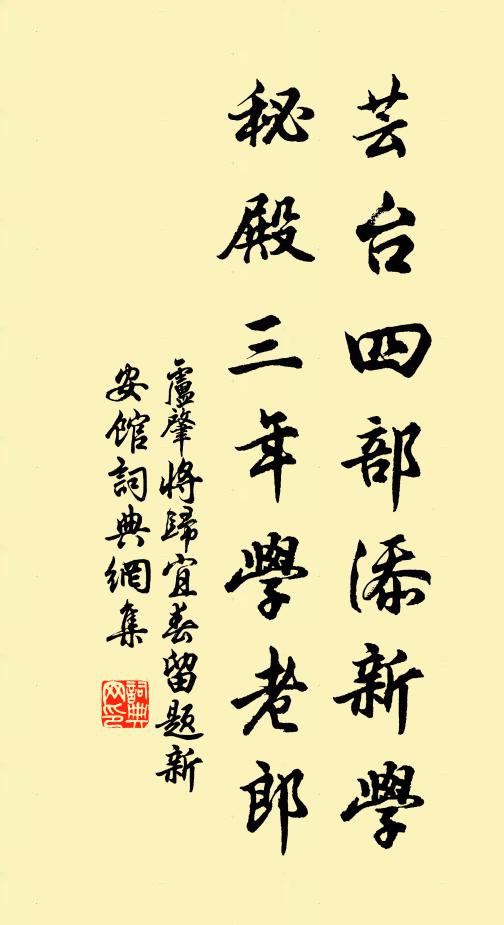 芸台四部添新學
秘殿三年學老郎
盧肇將歸宜春留題新
安館詞典網集
詞典網印